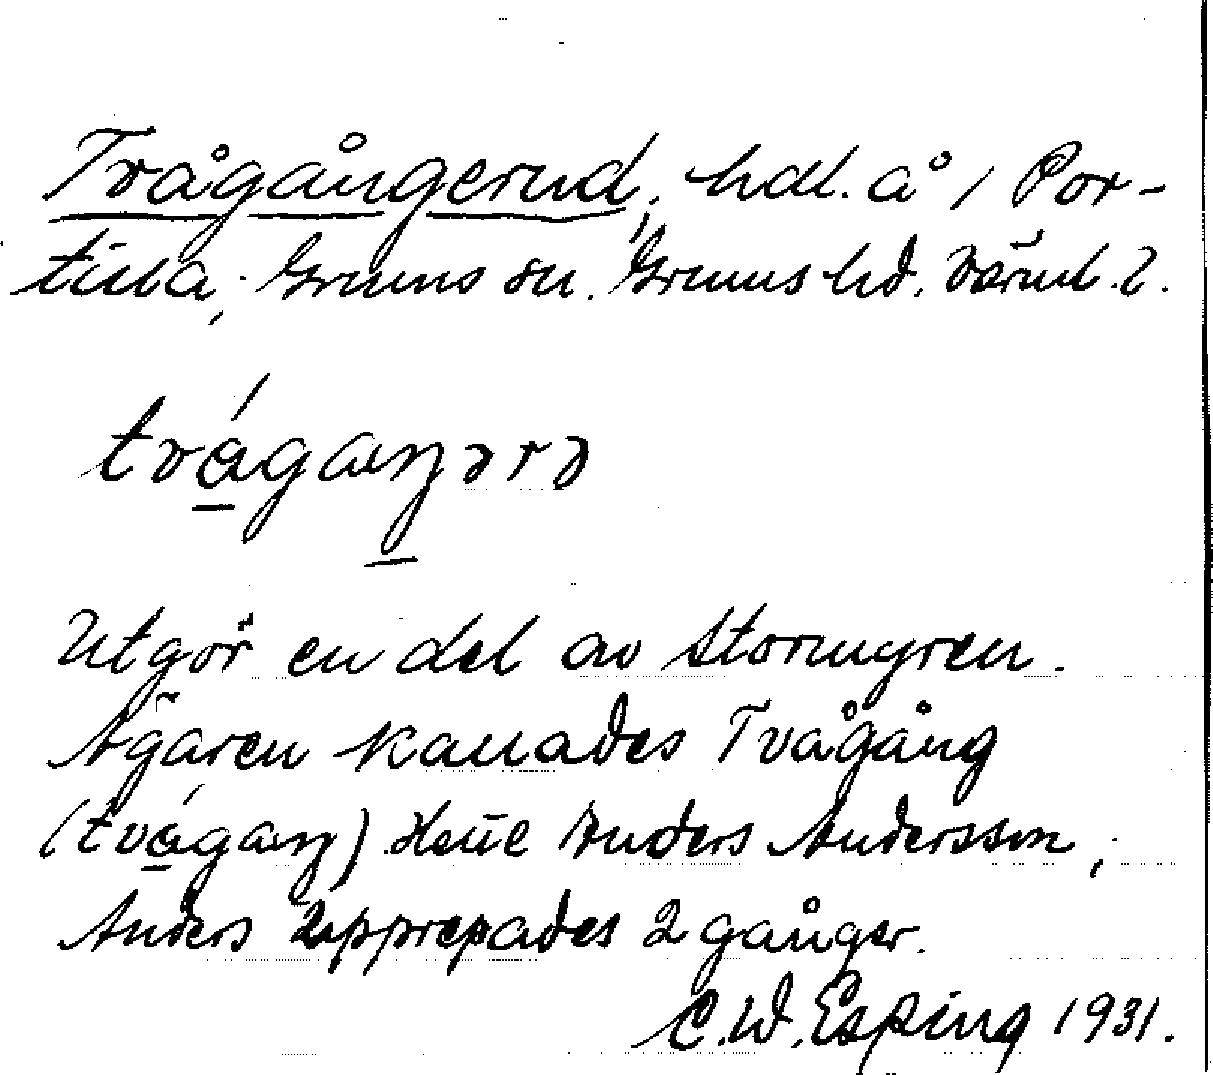 Tvågångerud, hdl. å 1 Por-
tilla, Grums sn. Grums hd. Värml. l.
tvågaŋərə
Utgör en del av Stormyren.
Ägaren kallades Tvågång
(tvågaŋ) Hette Anders Andersson,
Anders upprepades 2 gånger.
C.W. Esping 1931.